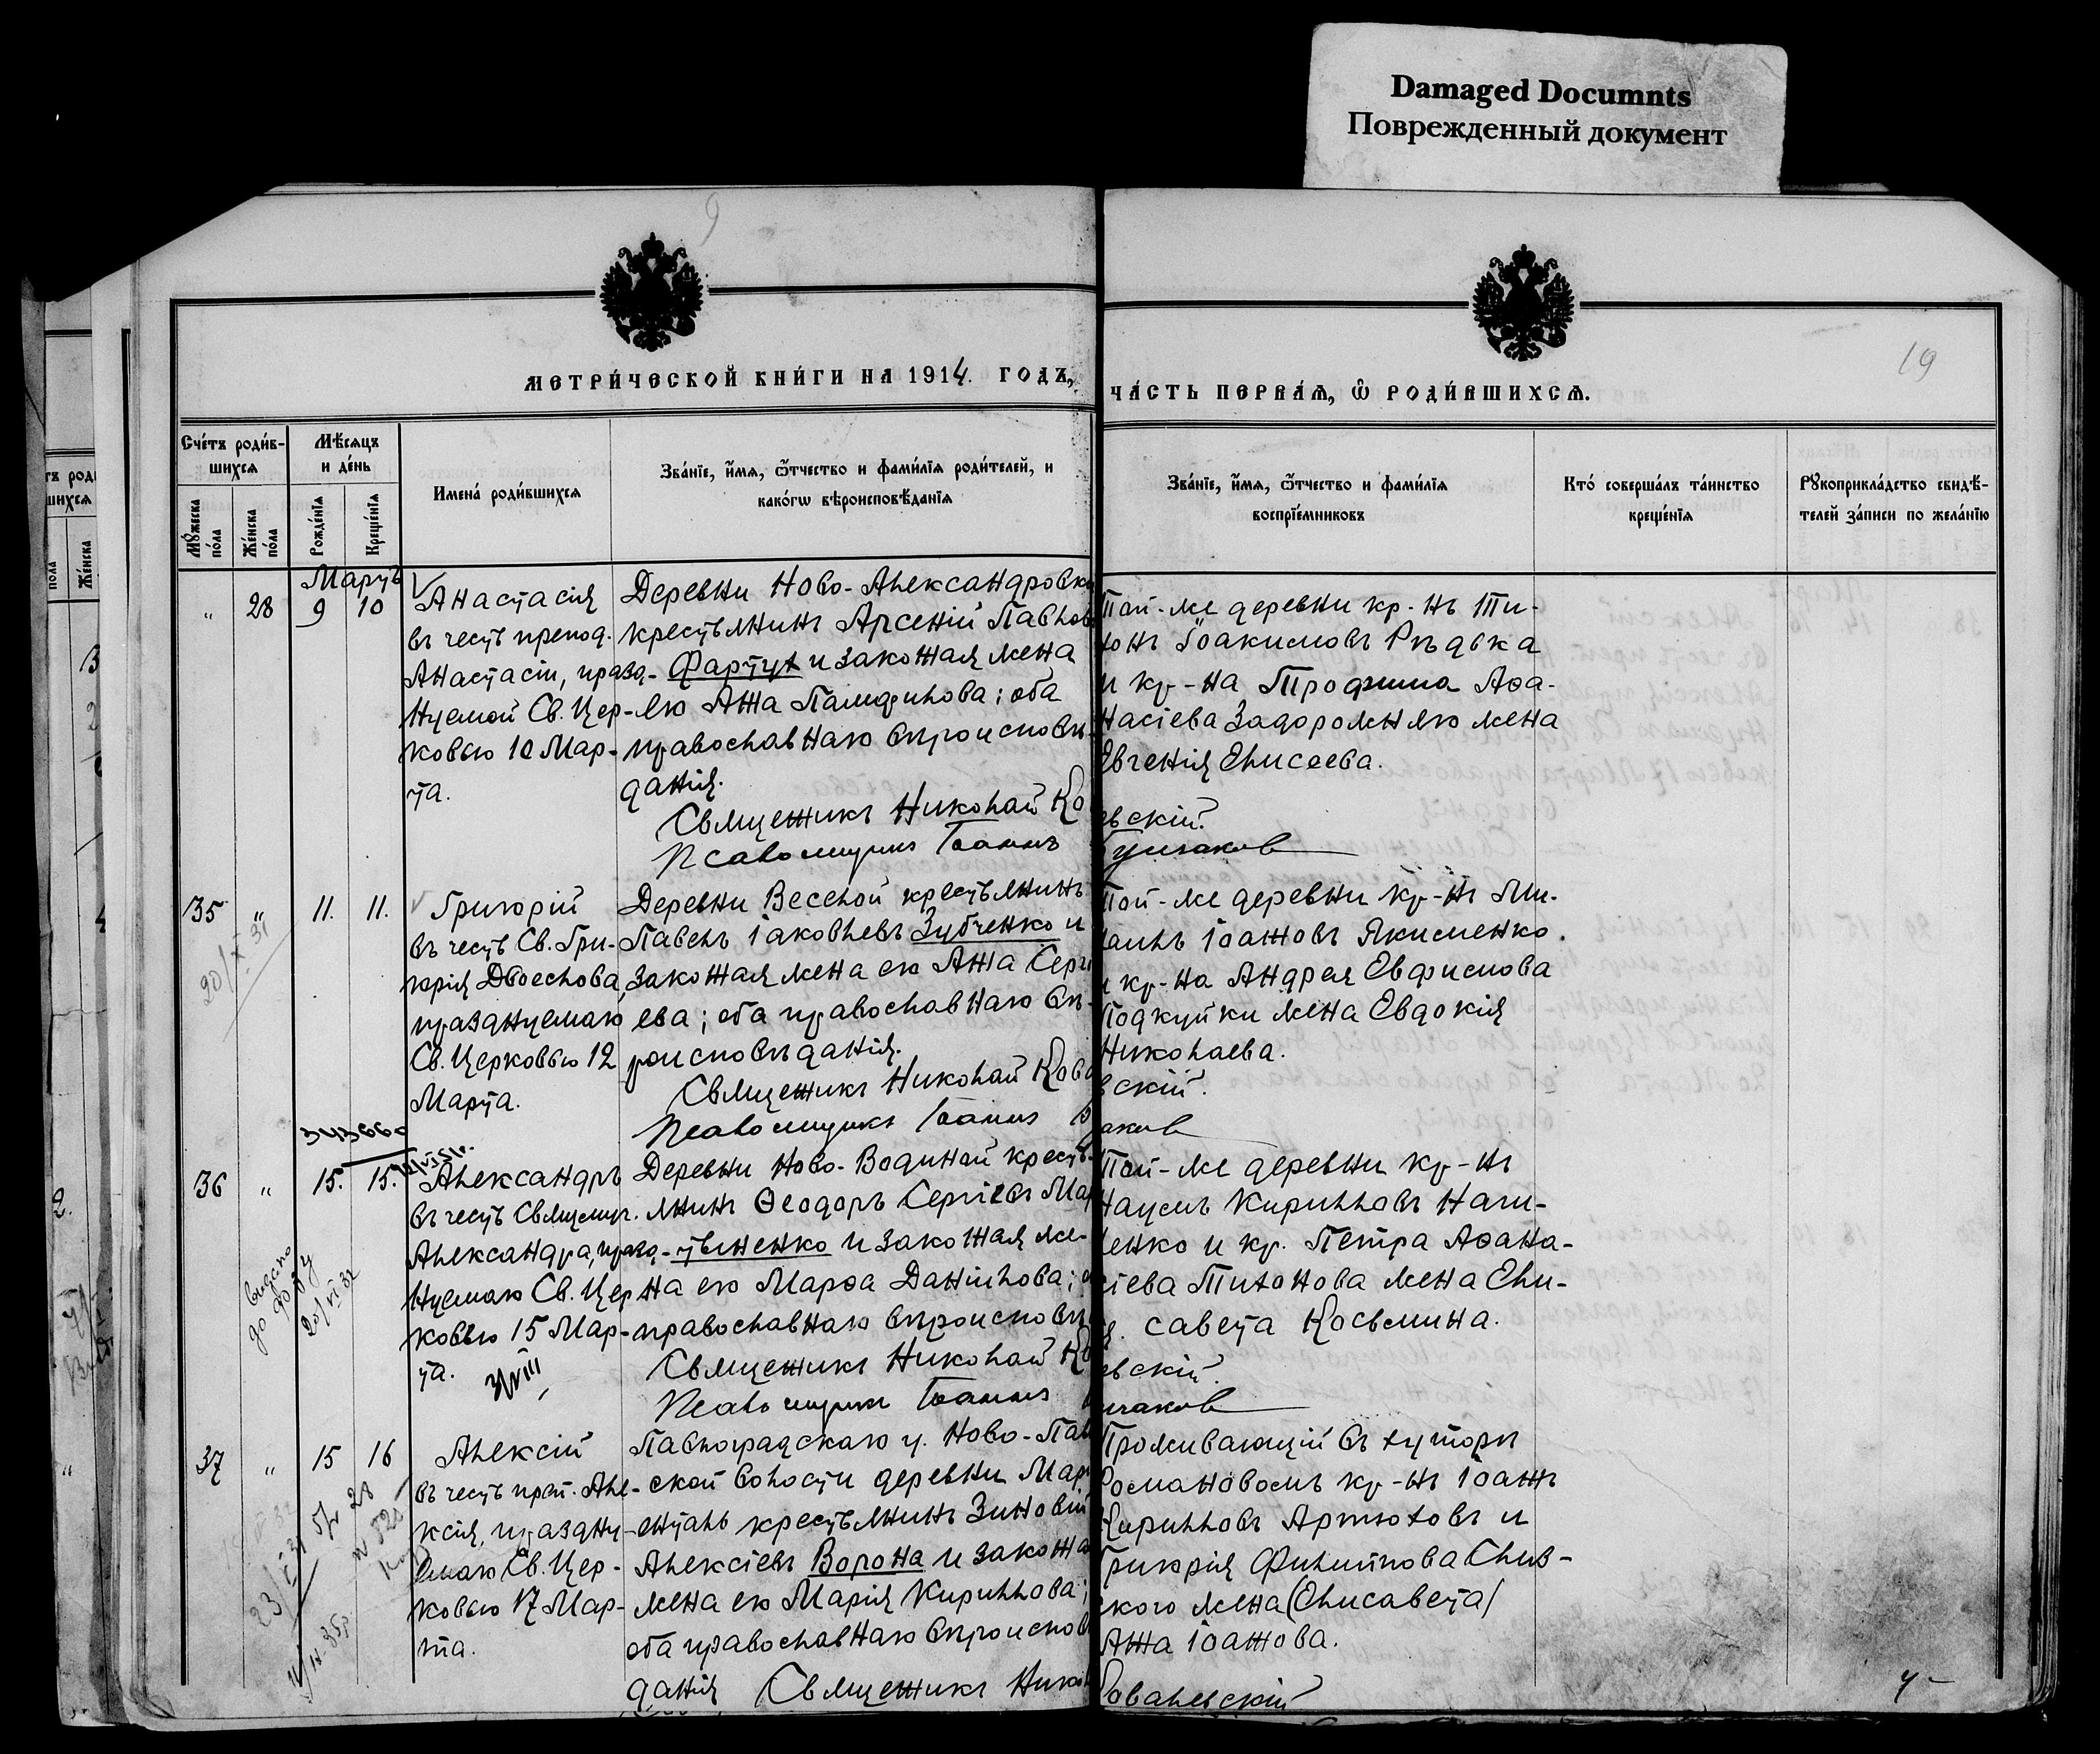 Damaged Documnts
Поврежденный документ
9
19
МЕТРИ́ЧЕСКОЙ КНИ́ГИ НА 1914. ГОДЪ,
ЧА́СТЬ ПЕРВА́Ѧ, Ѽ РОДИ́ВШИХСѦ.
Сче́тъ роди́в-
шихсѧ
Мꙋ́жеска по́ла
Же́нска по́ла
Мѣ́сяцъ
и де́нь
Рожде́нїѧ
Креще́нїѧ
Имена́ роди́вшихсѧ
Зва́нїе, и́мѧ, ѻ́тчество и фами́лїѧ роди́телей, и
како́гѡ вѣроисповѣ́данїѧ
Зва́нїе, и́мѧ, ѻ́тчество и фами́лїѧ
воспрїе́мниковъ
Кто́ соверша́лъ та́инство
креще́нїѧ
Рꙋкоприкла́дство свидѣ́-
телей за́писи по жела́нїю
Мартъ
" 28 9 10
Анастасія
въ честь препод.
Анастасіи, празд-
нуемой Св. Цер-
ковью 10 Мар-
та.
Деревни Ново-Александровки
крестьянинъ Арсеній Павлов
Фартух и законная жена
его Анна Памфилова; оба
православнаго вѣроисповѣ-
данія.
Той-же деревни кр-нъ Ти-
хонъ Іоакимовъ Рѣдка
и кр-на Трофима Аѳа-
насіева Задорожняго жена
Евгенія Елисеева.
Священникъ Николай Ко евскій.
Псаломщикъ Іоаннъ
35 " 11. 11.
Григорій
въ честь Св. Гри-
горія Двоеслова,
празднуемаго
Св. Церковью 12
Марта.
Деревни Веселой крестьянинъ
Павелъ Іаковлевъ Зубченко и
законная жена его Анна Серги
ева; оба православнаго вѣ-
роисповѣданія.
Той-же деревни кр-нъ Ми-
хаилъ Іоанновъ Якименко.
и кр-на Андрея Евфимова
Подкуйки жена Евдокія
Николаева.
Священникъ Николай Кова вскій.
Псаломщикъ Іоаннъ
343660
36 " 15. 15.
Александръ
въ честь Священмуч.
Александра, празд-
нуемаго Св. Цер-
ковью 15 Мар-
та.
Деревни Ново-Водяной кресть-
янинъ Ѳеодоръ Сергіевъ Мар
тыненко и законная же-
на его Марѳа Даніилова;
православнаго вѣроисповѣ
Той-же деревни кр-нъ
Наумъ Кирилловъ Наги-
енко и кр. Петра Аѳана-
сіева Тихонова жена Ели-
савета Косьмина.
видано
20/VI 32
Священникъ Николай Ко евскій.
Псаломщикъ Іоаннъ
37 " 15 16
Алексій
въ честь преп. Але-
ксія, праздну-
емаго Св. Цер-
ковью 17 Мар-
та.
Павлоградскаго у. Ново-Пав
ской волости деревни Мар
енталь крестьянинъ Зиновій
Алексіевъ Ворона и законна
жена его Марія Кириллова;
оба православнаго вѣроисповѣ
данія
Проживающій въ хуторѣ
Романовомъ кр-нъ Іоаннъ
Кирилловъ Артюховъ и
Григорія Филиппова Слив-
ского жена (Елисавета)
Анна Іоаннова.
Священникъ Никол Ковалевскій